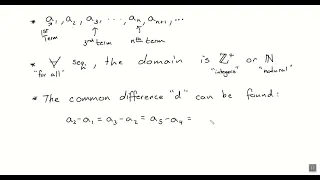 * a₁, a₂, a₃, ···, aₙ, aₙ₊₁, ···
1st Term 3rd term nth term
* ∀ seq, the domain is ℤ⁺ or ℕ
"for all" "integers" "natural"
* The common difference "d" can be found:
a₂-a₁ = a₃-a₂ = a₅-a₄ =